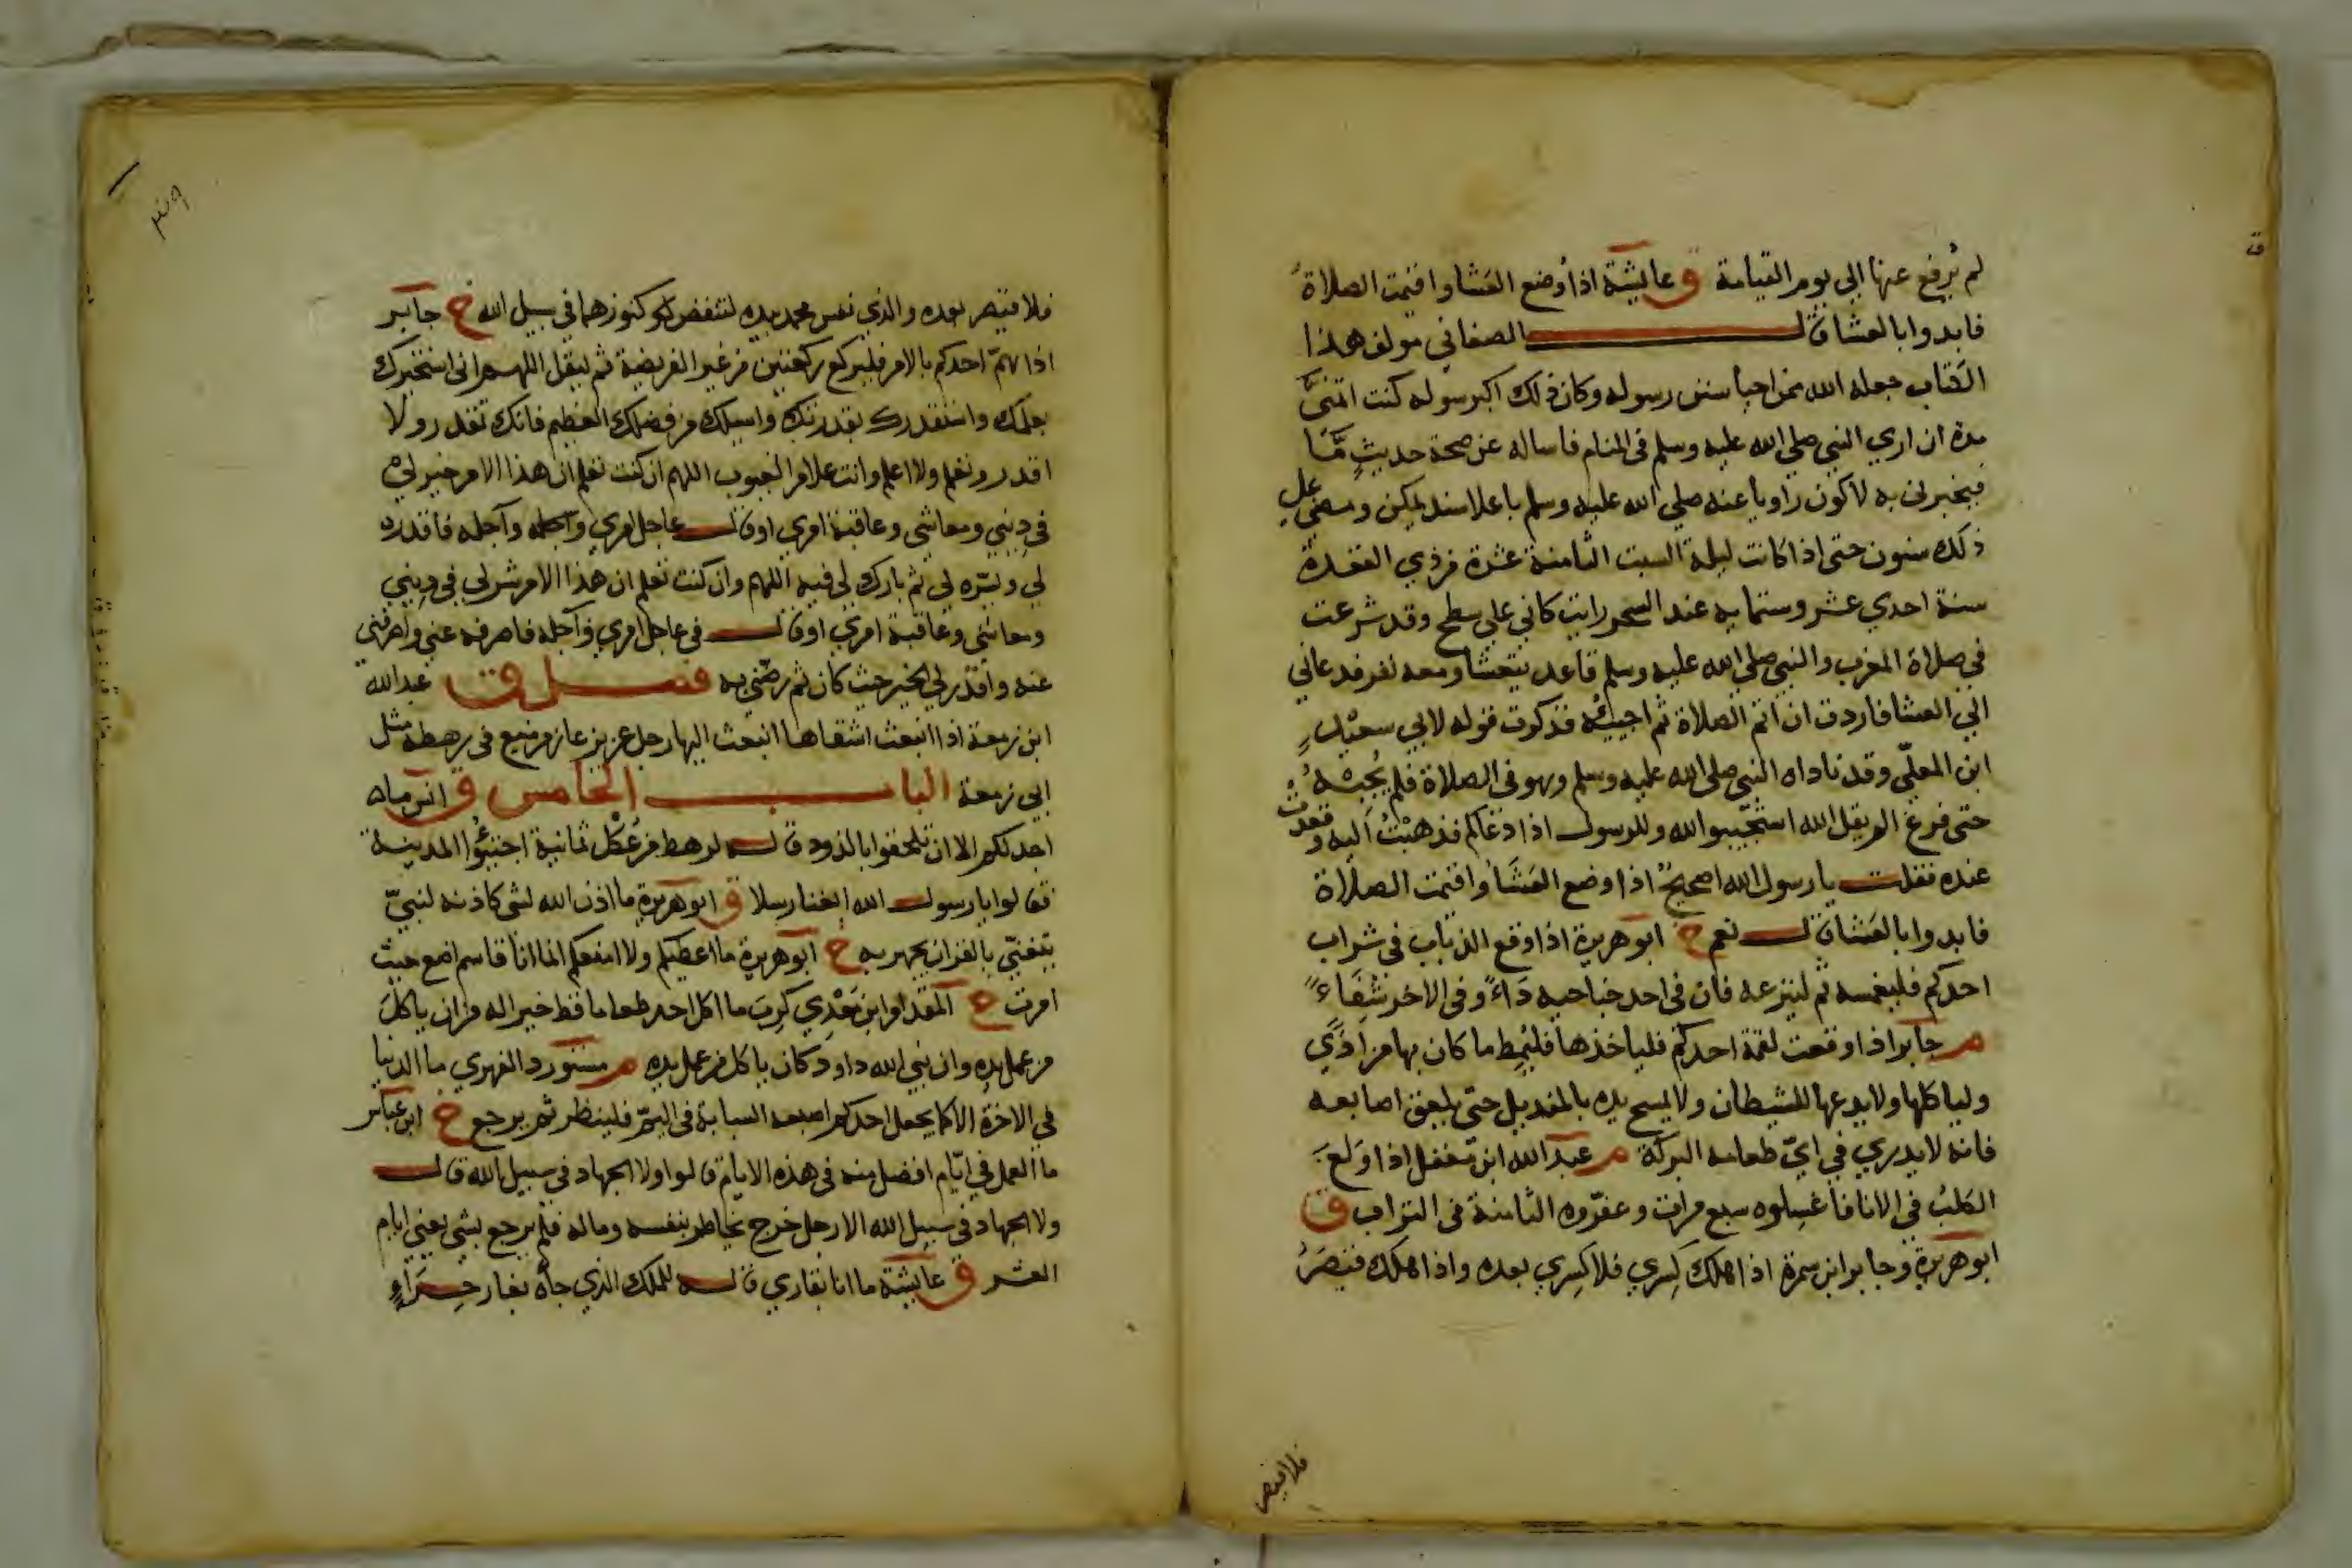 لم يُرفع عنها الي يوم القيامة ق عايشة اذا وُضع العَشا واقيمت الصلاة
فابدوا بالعشا قال الصغاني مولف هذا
الكتاب جعله الله ممن احيا سنن رسوله وكان ذلك اكبر سوله كنت اتمنيَّ
مدة ان اري النبي صلي الله عليه وسلم في المنام فاساله عن صحة حديثٍ مَّا
فيخبرني به لاكون راويا عنه صلي الله عليه وسلم باعلا سند يمكن ومضي علي
ذلك سنون حتي اذا كانت ليلة السبت الثامنة عشرة من ذي القعدة
سنة احدي عشر وستمايه عند السحر رايت كاني علي سطح وقد شرعت
في صلاة المغرب والنبي صلي الله عليه وسلم قاعد يتعشا ومعه نفر فدعاني
الي العشا فاردت ان اتم الصلاة ثم اجيبُه فذكرت قوله لابي سعيدٍ
ابن المعلّي وقد ناداه النبي صلي الله عليه وسلم وهو في الصلاة فلم يُجبْهُ
حتي فرغ الم يقل الله استجيبوا لله وللرسول اذا دعاكم فذهبْتُ اليه وقعدتُ
عنده فقلت يا رسول الله اصحيحٌ اذا وضع العَشَا واقيمت الصلاة
فابدوا بالعَشا قال نعم خ ابو هريرة اذا وقع الذباب في شراب
احدكم فليغمسه ثم لينزعه فان في احد جناحيه دَاءً وفي الاخر شِفَاءً
م جابر اذا وقعت لقمة احدكم فلياخذها فليُمِط ما كان بها من اذًي
ولياكلها ولا يدعها للشيطان ولا يمسح يده بالمنديل حتي يلعق اصابعه
فانه لا يدري في ايّ طعامه البركة م عبد الله ابن مغفل اذا ولغ
الكلبُ في الانا فاغسِلوه سبع مرات وعفّروه الثامنة في التراب ق
ابو هريرة وجابر ابن سمرة اذا هلك كِسري فلا كِسري بعده واذا هلك قيصَرُ
فلا قيصر
فلا قيصر بعده والذي نفس محمد بيده لتنفقن كنوزهما في سبيل الله خ جابر
اذا همّ احدكم بالامر فليركع ركعتين من غير الفريضة ثم ليقل اللهم اني استخيرك
بعلمك واستقدرك بقدرتك واسيلك من فضلك العظيم فانك تقدر ولا
اقدر وتعلم ولا اعلم وانت علام الغيوب اللهم ان كنت تعلم ان هذا الامر خير لي
في ديني ومعاشي وعاقبة امري او قال عاجل امري وآجله فاقدره
لي ويسّره لي ثم بارك لي فيه اللهم وان كنت تعلم ان هذا الامر شر لي في ديني
ومعاشي وعاقبة امري او قال في عاجل امري وآجله فاصرفه عني واصرفني
عنه واقدر لي الخير حيث كان ثم رضّني به فصل ق عبد الله
ابن زمعة اذا انبعث اشقاها انبعث اليها رجل عزيز عارم منيع في رهطه مثل
ابي زمعة الباب الخامس ق انس ما
اجد لكم الا ان تلحقوا بالذود قاله لرهط من عُكْل ثمانية اجتوُوا المدينة
فقالوا يا رسول الله ابغنا رسلا ق ابو هريرة ما اذن الله لشي كاذنه لنبيّ
يتغنّي بالقران يجهر به خ ابو هريرة ما اعطيكم ولا امنعكم انما انا قاسم اضع حيث
امرت خ المقدام ابن مَعْدِي كَرِبَ ما اكل احد طعاما قط خيرا له من ان ياكلَ
من عمل يده وان نبي الله داود كان ياكل من عمل يده م مستورد الفهري ما الدنيا
في الاخرة الا كما يجعل احدكم اصبعه السبابة في اليمّ فلينظر ثم يرجع خ ابن عباس
ما العمل في ايّام افضل منه في هذه الايام قالوا ولا الجهاد في سبيل الله قال
ولا الجهاد في سبيل الله الا رجل خرج يخاطر بنفسه وماله فلم يرجع بشي يعني ايام
العشر ق عايشة ما انا بقاري قاله للملك الذي جاه بغار حِرَاءٍ